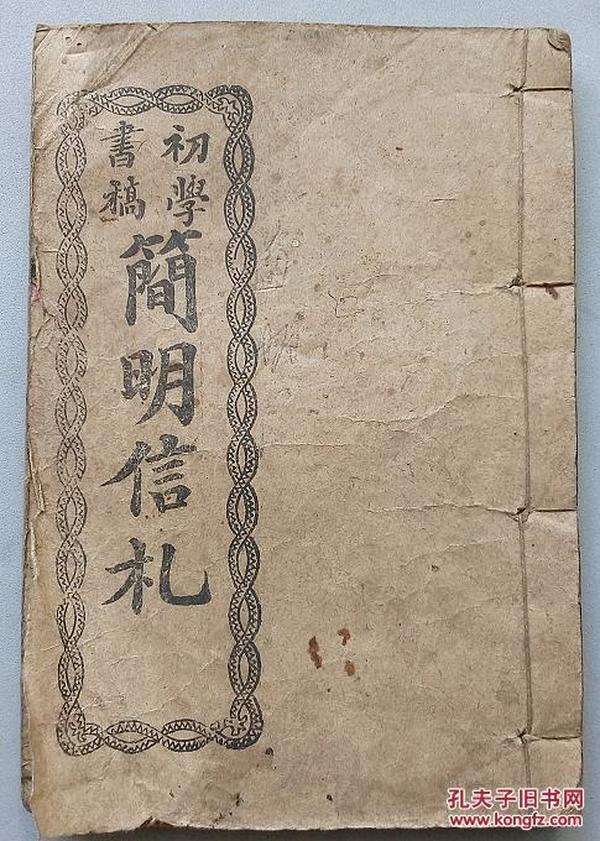 初學
書稿
簡明信札
孔夫子旧书网
www.kongfz.com